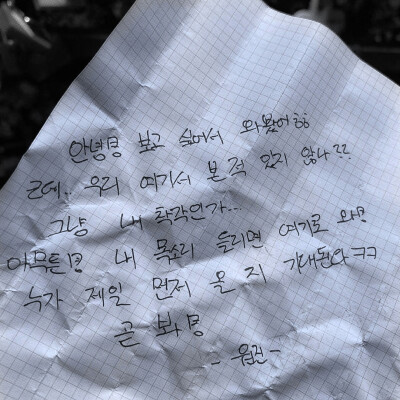 안녕 보고 싶어서 와봤어ㅎㅎ
근데.. 우리 여기서 본 적 있지 않나??
그냥 내 착각인가...
아무튼 내 목소리 들리면 여기로 와
누가 제일 먼저 올 지 기대된다 ㅋㅋ
곧 봐
- 원진 -